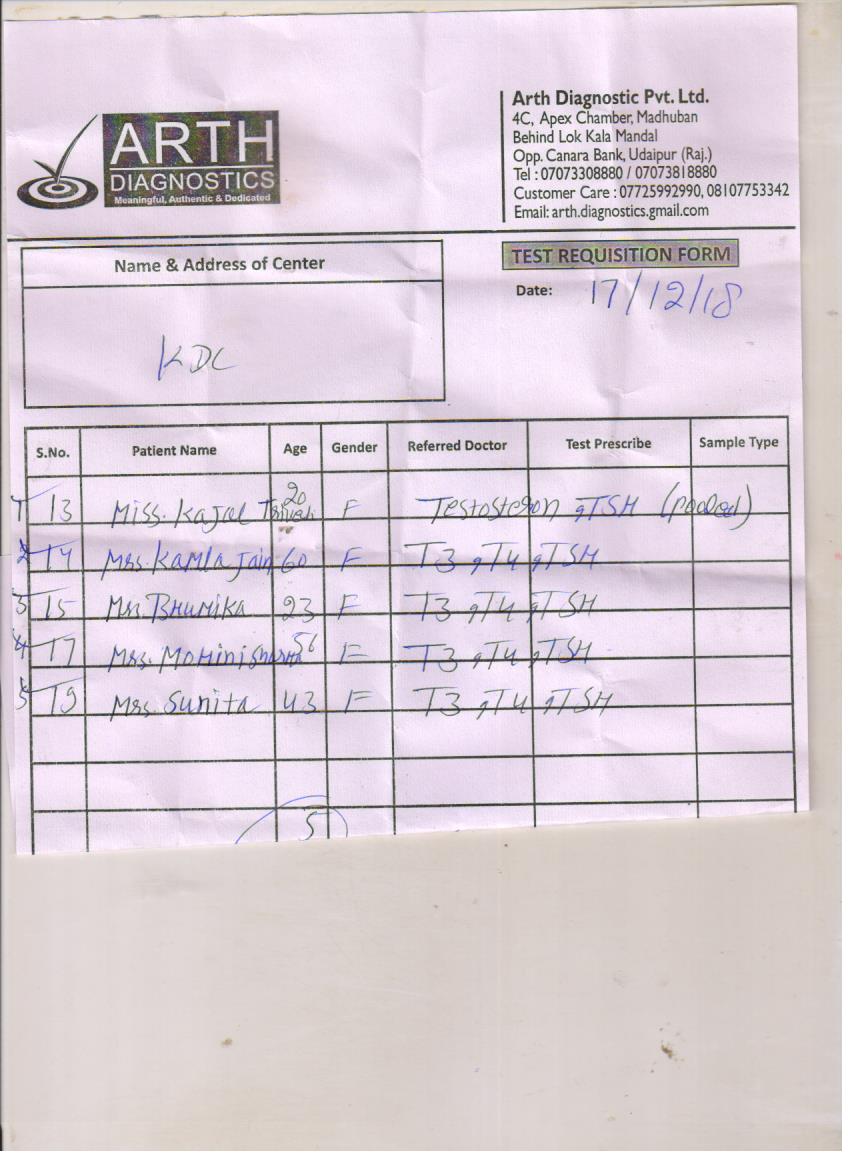 ARTH
DIAGNOSTICS
Meaningful, Authentic & Dedicated
Arth Diagnostic Pvt. Ltd.
4C, Apex Chamber, Madhuban
Behind Lok Kala Mandal
Opp. Canara Bank, Udaipur (Raj.)
Tel : 07073308880 / 07073818880
Customer Care : 07725992990, 08107753342
Email: arth.diagnostics.gmail.com
Name & Address of Center
TEST REQUISITION FORM
Date: 17/12/18
KDC
S.No. Patient Name Age Gender Referred Doctor Test Prescribe Sample Type
1 13 Miss. Kajal 20 F Testosteron, TSH (pooled)
2 14 Mrs. Kamla Jain 60 F T3, T4, TSH
3 15 Mrs. Bhumika 23 F T3, T4, TSH
4 17 Mrs. Mohini Sharma 56 F T3, T4, TSH
5 19 Mrs. Sunita 43 F T3, T4, TSH
5